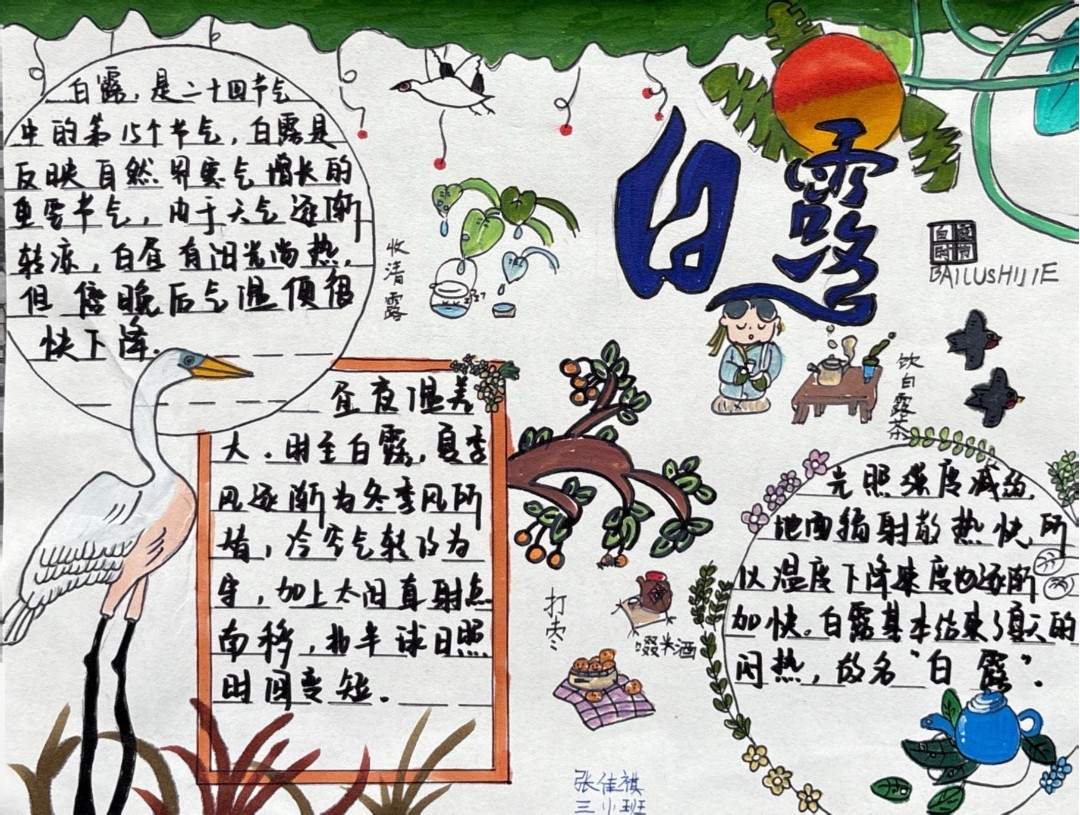 白露,是二十四节气
中的第15个节气,白露是
反映自然界寒气增长的
重要节气,由于天气逐渐
转凉,白昼有阳光尚热,
但傍晚后气温便很
快下降。
昼夜温差
大.时至白露,夏季
风逐渐为冬季风所
替,冷空气转为
守,加上太阳直射点
南移,北半球日照
时间变短.
收清露
白露
BAILUSHIJIE
饮白露茶
打枣
啜米酒
光照强度减弱,
地面辐射散热快,所
以温度下降速度也逐渐
加快。白露基本结束了夏天的
闷热,故名“白露”.
张佳祺
三
班